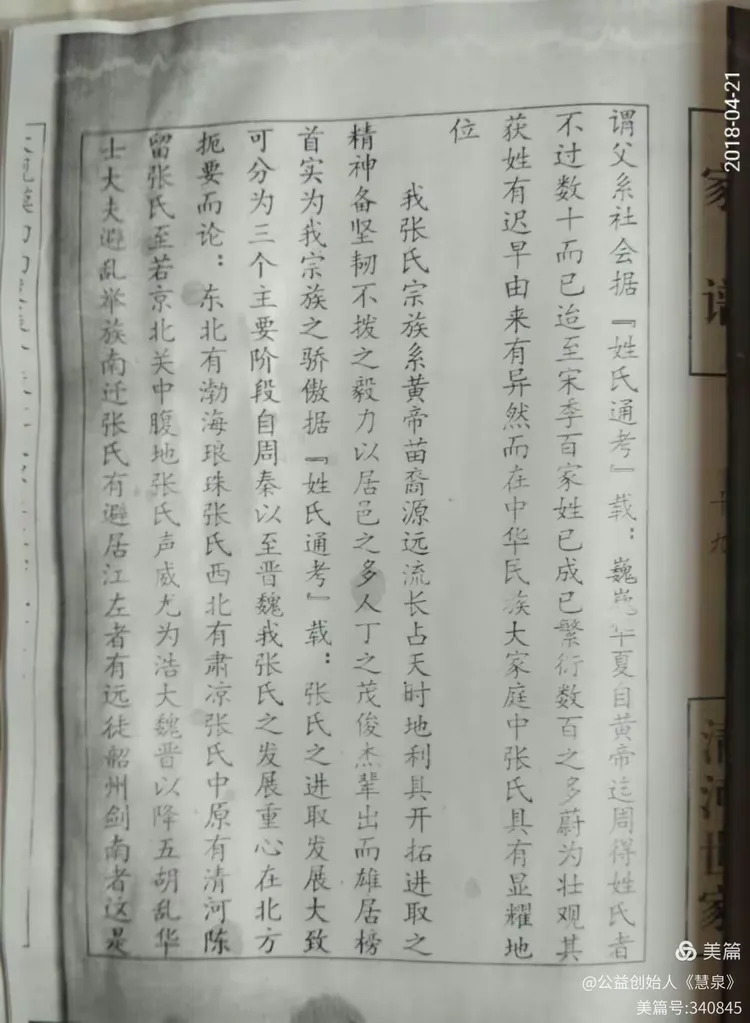 谓父系社会据『姓氏通考』载：巍巍华夏自黄帝迄周得姓氏者
不过数十而已迨至宋季百家姓已成已繁衍数百之多蔚为壮观其
获姓有迟早由来有异然而在中华民族大家庭中张氏具有显耀地
位
我张氏宗族系黄帝苗裔源远流长占天时地利具开拓进取之
精神备坚韧不拨之毅力以居邑之多人丁之茂俊杰辈出而雄居榜
首实为我宗族之骄傲据『姓氏通考』载：张氏之进取发展大致
可分为三个主要阶段自周秦以至晋魏我张氏之发展重心在北方
扼要而论：东北有渤海琅珠张氏西北有肃凉张氏中原有清河陈
留张氏至若京北关中腹地张氏声威尤为浩大魏晋以降五胡乱华
士大夫避乱举族南迁张氏有避居江左者有远徒韶州剑南者这是
家谱
十九
清河世家
2018-04-21
美篇
@公益创始人《慧泉》
美篇号:340845